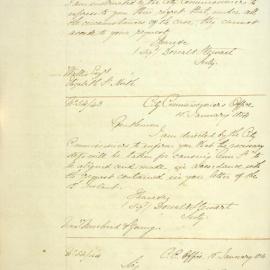 I am instructed by the City Commissioners to
express to you their regret that under all
the circumstances of the case they cannot
accede to your request
I have &c
(Sgd) Donald Stewart
Secty.
Wallis Esqr
Elizabeth St North
City Commissioners Office
January 1854
Gentlemen
I am directed by the City
Commissioners to inform you that the necessary
steps will be taken for causing
to be aligned and made in accordance with
the request contained in your letter of the
Instant.
I have &c
(Sgd) Donald Stewart
Secty
C. C. Office January 1854
Sir